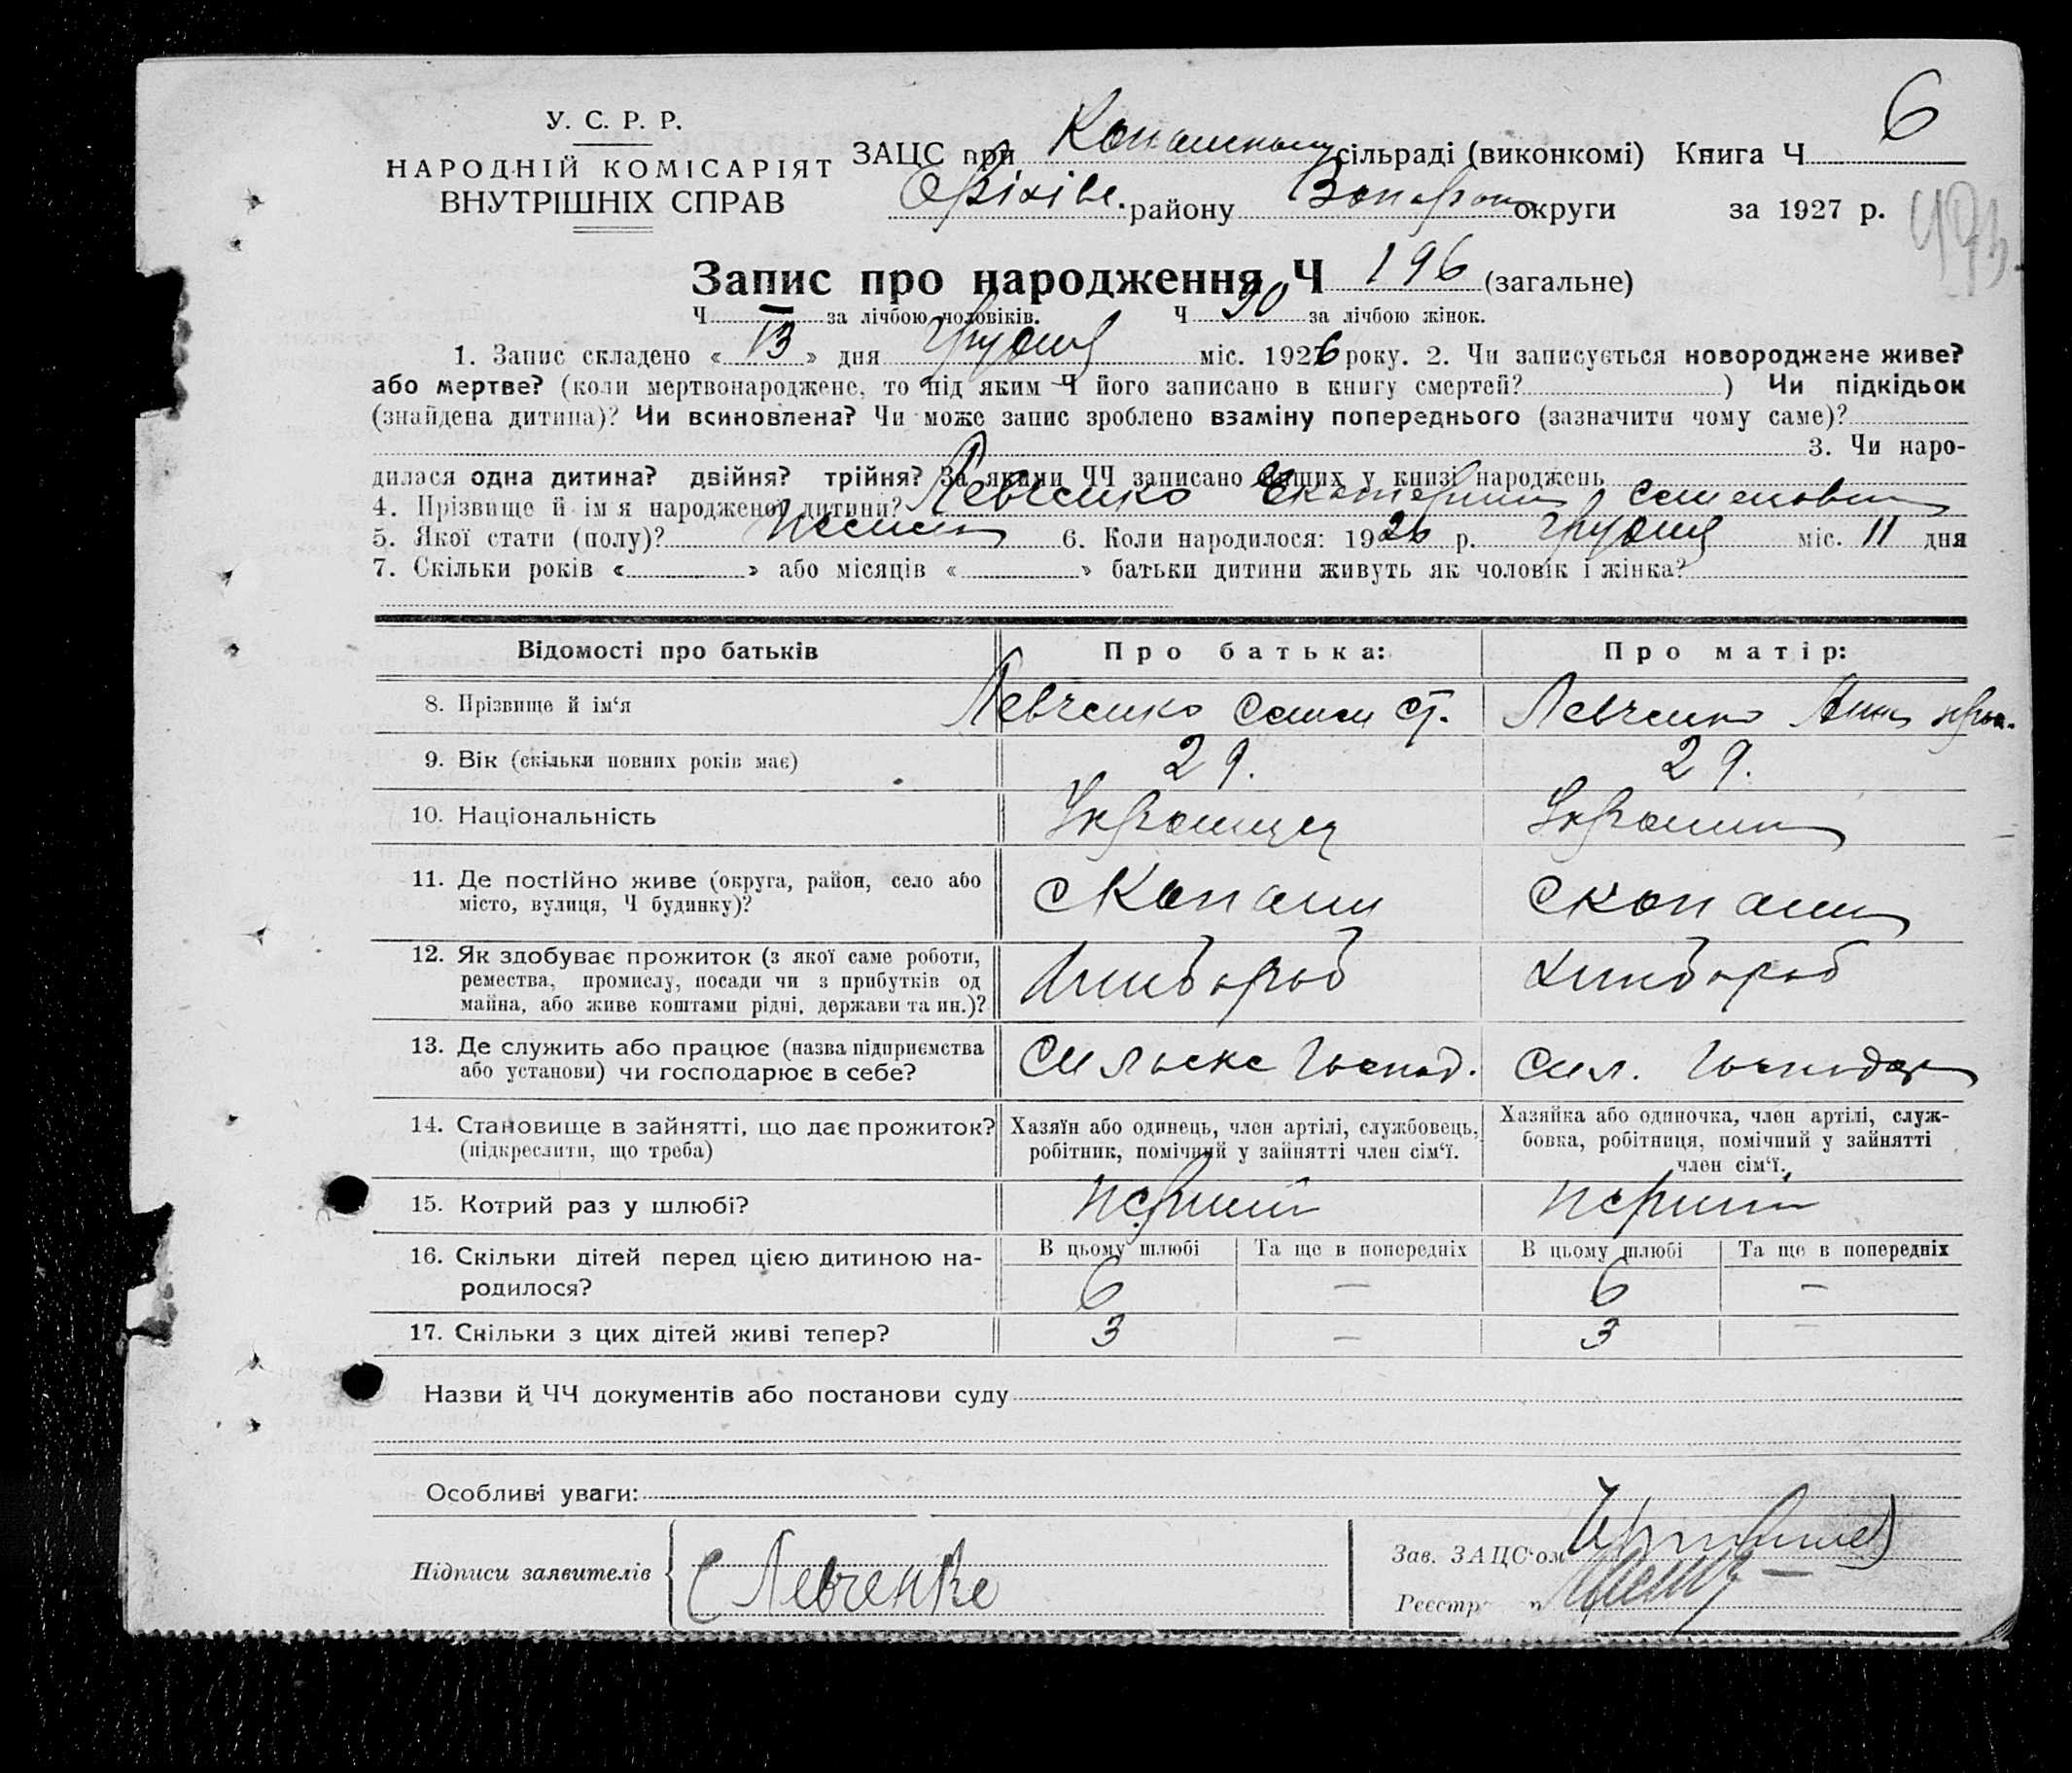 У. С. Р. Р.
НАРОДНІЙ КОМІСАРІЯТ
ВНУТРІШНІХ СПРАВ
ЗАЦС при сільраді (виконкомі) Книга Ч 6
Оріхів. району Запоріж округи за 1927 р.
Запис про народження Ч 196 (загальне)
Ч — за лічбою чоловіків. Ч 90 за лічбою жінок.
1. Запис складено « 13 » дня Грудня міс. 1926 року. 2. Чи записується новороджене живе?
або мертве? (коли мертвонароджене, то під яким Ч його записано в книгу смертей? ) Чи підкідьок
(знайдена дитина)? Чи всиновлена? Чи може запис зроблено взаміну попереднього (зазначити чому саме)?
3. Чи наро-
дилася одна дитина? двійня? трійня? За якими ЧЧ записано инших у книзі народжень
4. Прізвище й ім'я народженої дитини? Левченко Екатерина Семеновна
5. Якої стати (полу)? 6. Коли народилося: 1926 р. Грудня міс. 11 дня
7. Скільки років « » або місяців « » батьки дитини живуть як чоловік і жінка?
Відомості про батьків
Про батька:
Про матір:
8. Прізвище й ім'я
Левченко Семен Ст.
Левченко Анна
9. Вік (скільки повних років має)
29.
29.
10. Національність
Украинец
Украинка
11. Де постійно живе (округа, район, село або
місто, вулиця, Ч будинку)?
с Копани
с Копани
12. Як здобуває прожиток (з якої саме роботи,
ремества, промислу, посади чи з прибутків од
майна, або живе коштами рідні, держави та ин.)?
Хлибороб
Хлибороб
13. Де служить або працює (назва підприємства
або установи) чи господарює в себе?
Сильске Господ.
Сил. Господар
14. Становище в зайнятті, що дає прожиток?
(підкреслити, що треба)
Хазяїн або одинець, член артілі, службовець,
робітник, помічний у зайнятті член сім'ї.
Хазяйка або одиночка, член артілі, служ-
бовка, робітниця, помічний у зайнятті
член сім'ї.
15. Котрий раз у шлюбі?
перший
перший
16. Скільки дітей перед цією дитиною на-
родилося?
В цьому шлюбі
Та ще в попередніх
В цьому шлюбі
Та ще в попередніх
6
—
6
—
17. Скільки з цих дітей живі тепер?
3
—
3
—
Назви й ЧЧ документів або постанови суду
Особливі уваги:
Підписи заявителів
С Левченко
Зав. ЗАЦС'ом